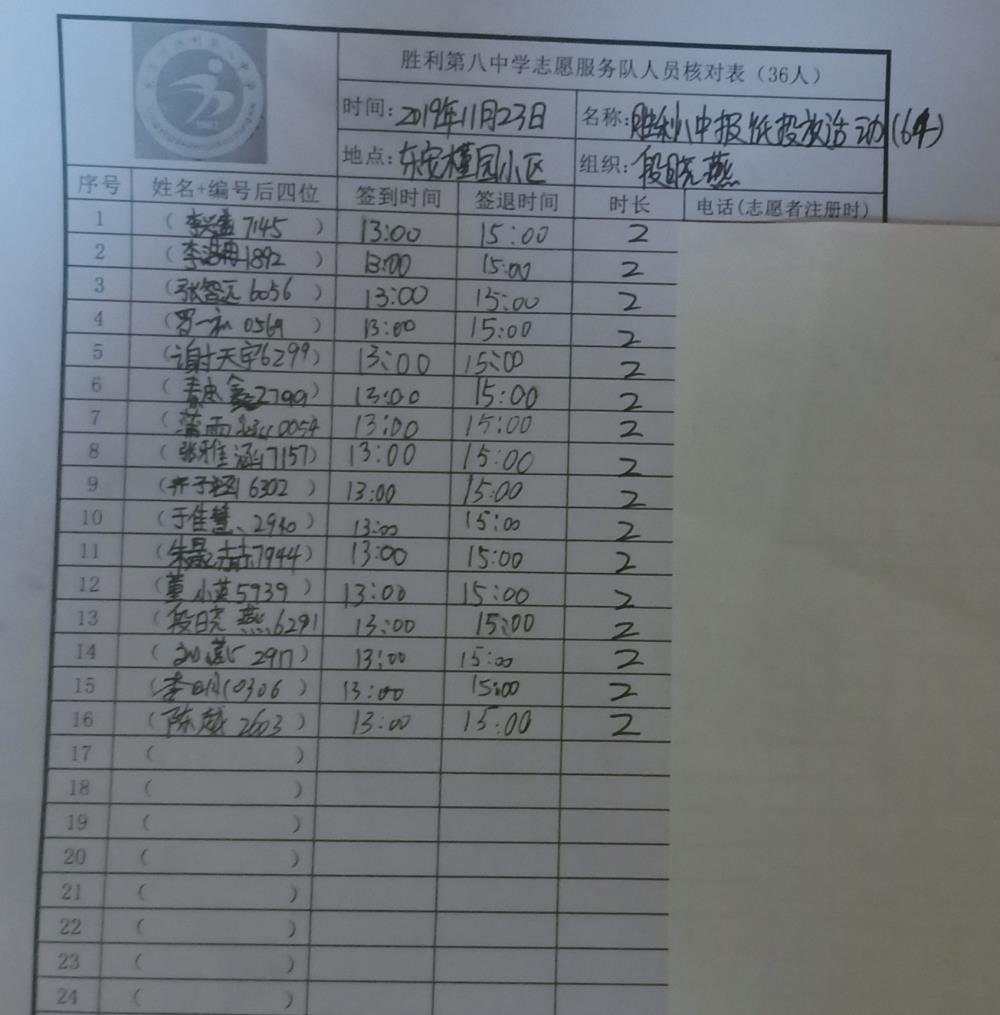 胜利第八中学志愿服务队人员核对表（36人）
时间：2019年11月23日 名称：胜利八中报纸投放活动
地点：东安槿园小区 组织：段晓燕
序号 姓名+编号后四位 签到时间 签退时间 时长 电话(志愿者注册时)
1 (7145) 13:00 15:00 2
2 (1892) 13:00 15:00 2
3 (张智远 6056) 13:00 15:00 2
4 (罗一 0569) 13:00 15:00 2
5 (谢天宇6299) 13:00 15:00 2
6 (2799) 13:00 15:00 2
7 (雨 0054 13:00 15:00 2
8 (张雅涵7157) 13:00 15:00 2
9 (子涵 6302) 13:00 15:00 2
10 (于佳慧、2940) 13:00 15:00 2
11 (朱 7944) 13:00 15:00 2
12 (董小英5939) 13:00 15:00 2
13 (段晓燕6291 13:00 15:00 2
14 (2917) 13:00 15:00 2
15 (李明 0306) 13:00 15:00 2
16 (陈越 2603) 13:00 15:00 2
17 ( )
18 ( )
19 ( )
20 ( )
21 ( )
22 ( )
23 ( )
24 ( )